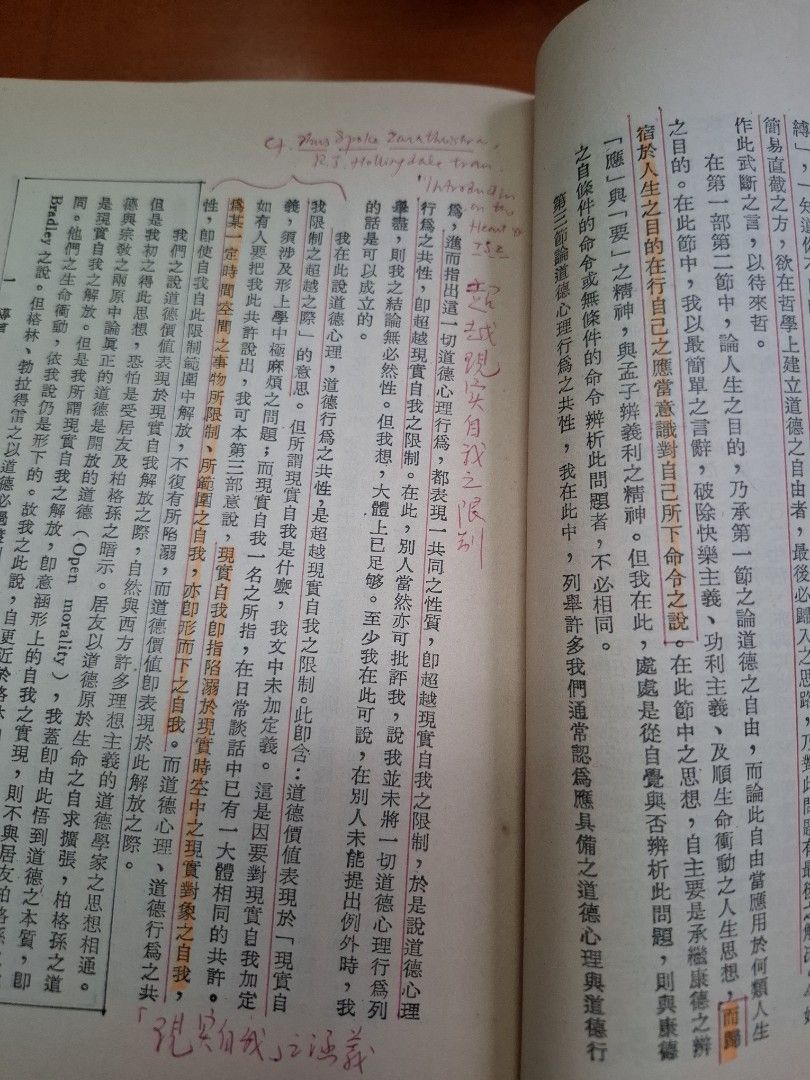 縛」，知道
簡易直截之方，欲在哲學上建立道德之自由者，最後必歸
作此武斷之言，以待來哲。
在第一部第二節中，論人生之目的，乃承第一節之論道德之自由，而論此自由當應用於何類人生
之目的。在此節中，我以最簡單之言辭，破除快樂主義、功利主義、及順生命衝動之人生思想，而歸
宿於人生之目的在行自己之應當意識對自己所下命令之說。在此節中之思想，自主要是承繼康德之辨
「應」與「要」之精神，與孟子辨義利之精神。但我在此，處處是從自覺與否辨析此問題，則與康德
之自條件的命令或無條件的命令辨析此問題者，不必相同。
第三節論道德心理行爲之共性，我在此中，列舉許多我們通常認爲應具備之道德心理與道德行
cf. Thus Spoke Zarathustra,
R.J. Hollingdale tran.
Introduction
爲，進而指出這一切道德心理行爲，都表現一共同之性質，卽超越現實自我之限制，於是說道德心理
行爲之共性，卽超越現實自我之限制。在此，別人當然亦可批評我，說我並未將一切道德心理行爲列
舉盡，則我之結論無必然性。但我想，大體上已足够。至少我在此可說，在別人未能提出例外時，我
的話是可以成立的。
超越現實自我之限制
我在此說道德心理，道德行爲之共性，是超越現實自我之限制。此卽含：道德價值表現於「現實自
我限制之超越之際」的意思。但所謂現實自我是什麼，我文中未加定義。這是因要對現實自我加定
義，須涉及形上學中極麻煩之問題；而現實自我一名之所指，在日常談話中已有一大體相同的共許。
如有人要把我此共許說出，我可本第三部意說，現實自我卽指陷溺於現實時空中之現實對象之自我，
爲某一定時間空間之事物所限制、所範圍之自我，亦卽形而下之自我。而道德心理、道德行爲之共
性，卽使自我自此限制範圍中解放，不復有所陷溺，而道德價值卽表現於此解放之際。
「現實自我」之涵義
我們之說道德價值表現於現實自我解放之際，自然與西方許多理想主義的道德學家之思想相通。
但是我初之得此思想，恐怕是受居友及柏格孫之暗示。居友以道德原於生命之自求擴張，柏格孫之道
德與宗敎之兩原中論眞正的道德是開放的道德（Open morality），我蓋卽由此悟到道德之本質，卽
是現實自我之解放。但是我所謂現實自我之解放，卽意涵形上的自我之實現，則不與居友柏格孫
同。他們之生命衝動，依我說仍是形下的。故我之此說，自更近於格林
Bradley 之說。但格林、勃拉得雷之以道德必
一